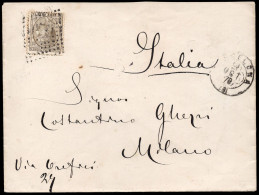 Italia
Signor
Costantino Ghezzi
Milano
Via Orefici
24